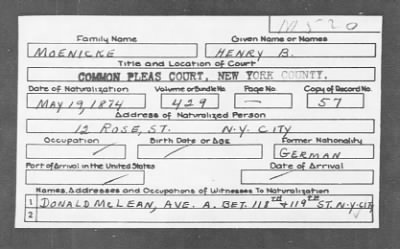 M520
Family Name Given Name or Names
MOENICKE HENRY B.
Title and Location of Court
COMMON PLEAS COURT, NEW YORK COUNTY.
Date of Naturalization Volume or Bundle No. Page No. Copy of Record No.
MAY 19, 1874 429 — 57
Address of Naturalized Person
12 ROSE, ST. N.Y. CITY
Occupation Birth Date or Age Former Nationality
GERMAN
Port of Arrival in the United States Date of Arrival
Names, Addresses and Occupations of Witnesses To Naturalization
1 DONALD MCLEAN, AVE. A. BET. 118TH + 119TH ST. N.Y. CITY
2